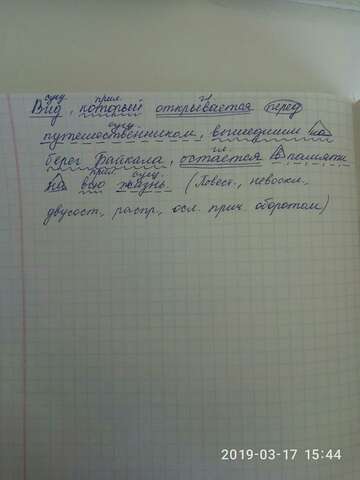 сущ. прил. гл.
Вид, который открывается перед
сущ.
путешественником, вышедшим на
гл.
берег Байкала, остаётся в памяти
прил. сущ.
на всю жизнь. (Повест., невоскл.,
двусост., распр., осл. прич. оборотом)
2019-03-17 15:44